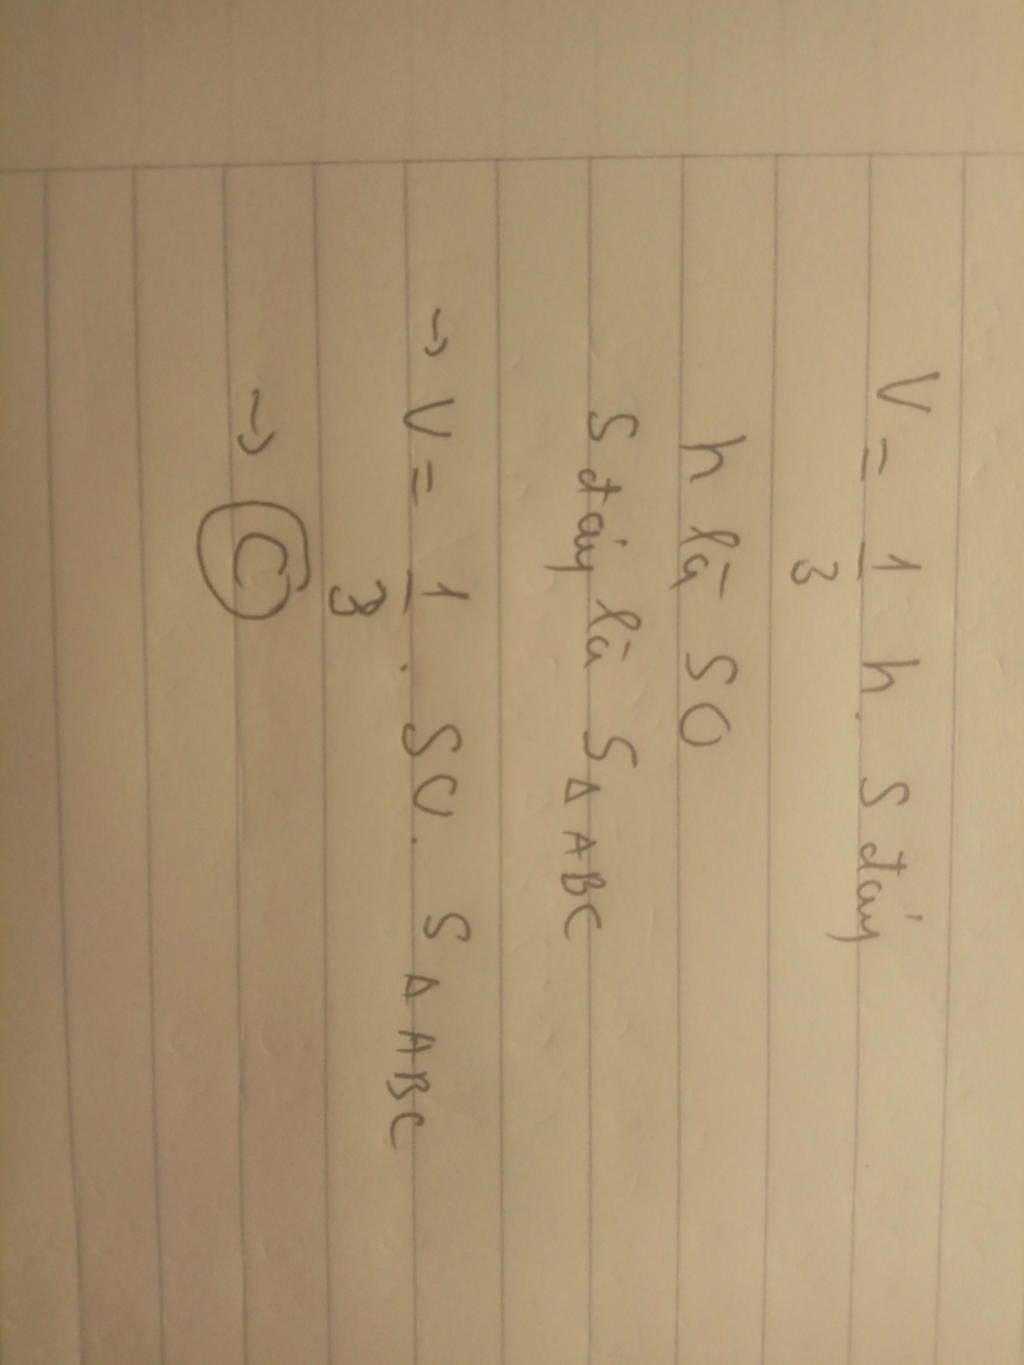 V = 1/3 h. S đáy
h là SO
S đáy là S Δ ABC
→ V = 1/3 . SO. S Δ ABC
→ C